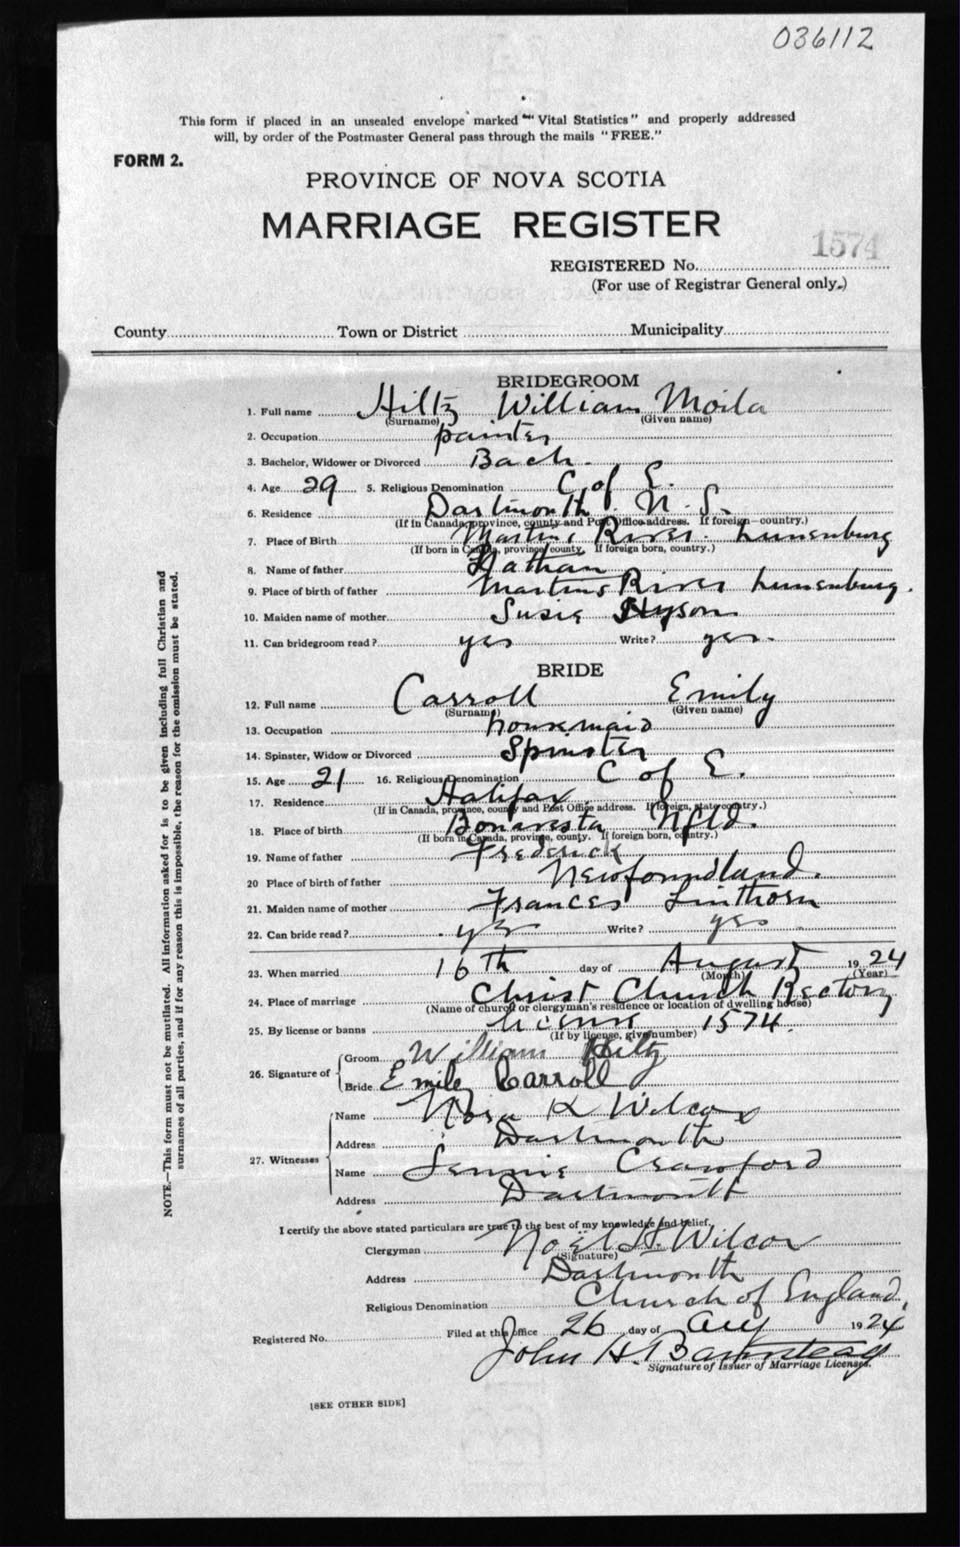 036112
This form if placed in an unsealed envelope marked "Vital Statistics" and properly addressed
will, by order of the Postmaster General pass through the mails "FREE."
FORM 2.
PROVINCE OF NOVA SCOTIA
MARRIAGE REGISTER
1574
REGISTERED No.
(For use of Registrar General only.)
County Town or District Municipality
BRIDEGROOM
1. Full name Hiltz William Moila
(Surname) (Given name)
2. Occupation painter
3. Bachelor, Widower or Divorced Bach.
4. Age 29 5. Religious Denomination C of E.
6. Residence Dartmouth N.S.
(If in Canada, province, county and Post Office address. If foreign—country.)
7. Place of Birth Martins River. Lunenburg
(If born in Canada, province, county. If foreign born, country.)
8. Name of father Nathan
9. Place of birth of father Martins River Lunenburg.
10. Maiden name of mother Susie Hyson
11. Can bridegroom read? yes Write? yes.
BRIDE
12. Full name Carroll Emily
(Surname) (Given name)
13. Occupation housemaid
14. Spinster, Widow or Divorced Spinster
15. Age 21 16. Religious Denomination C of E.
17. Residence Halifax
(If in Canada, province, county and Post Office address. If foreign, state country.)
18. Place of birth Bonavesta Nfld.
(If born in Canada, province, county. If foreign born, country.)
19. Name of father Frederick
20 Place of birth of father Newfoundland.
21. Maiden name of mother Frances Linthorn
22. Can bride read? yes Write? yes
23. When married 16th day of August 1924
(Month) (Year)
24. Place of marriage Christ Church Rectory
(Name of church or clergyman's residence or location of dwelling house)
25. By license or banns license 1574.
(If by license, give number)
26. Signature of Groom William Hiltz
Bride Emile Carroll
27. Witnesses Name Nora K Wilcox
Address Dartmouth
Name Jennie Crawford
Address Dartmouth
I certify the above stated particulars are true to the best of my knowledge and belief.
Clergyman Noël H. Wilcox
(Signature)
Address Dartmouth
Religious Denomination Church of England.
Registered No. Filed at this office 26 day of Aug 1924
John H. Barnstead
Signature of Issuer of Marriage Licenses.
[SEE OTHER SIDE]
NOTE.—This form must not be mutilated. All information asked for is to be given including full Christian and
surnames of all parties, and if for any reason this is impossible, the reason for the omission must be stated.